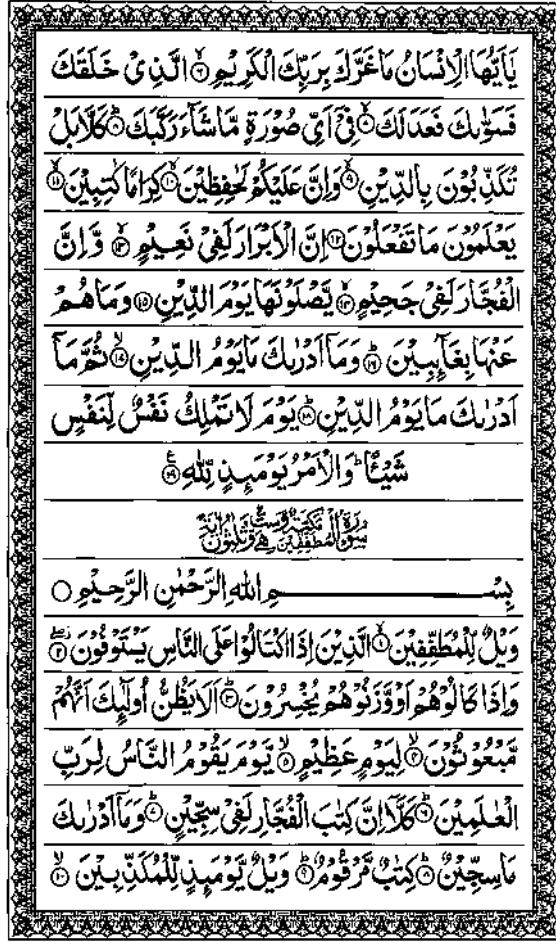 يٰۤاَيُّهَا الْاِنْسَانُ مَا غَرَّكَ بِرَبِّكَ الْكَرِيْمِ ۙ‏﴿۶﴾ الَّذِىْ خَلَقَكَ
فَسَوّٰٮكَ فَعَدَلَكَ ۙ‏﴿۷﴾ فِىْۤ اَىِّ صُوْرَةٍ مَّا شَآءَ رَكَّبَكَ ؕ‏﴿۸﴾ كَلَّا بَلْ
تُكَذِّبُوْنَ بِالدِّيْنِ ۙ‏﴿۹﴾ وَاِنَّ عَلَيْكُمْ لَحٰفِظِيْنَ ۙ‏﴿۱۰﴾ كِرَامًا كٰتِبِيْنَ ۙ‏﴿۱۱﴾
يَعْلَمُوْنَ مَا تَفْعَلُوْنَ‏﴿۱۲﴾ اِنَّ الْاَبْرَارَ لَفِىْ نَعِيْمٍ ۚ‏﴿۱۳﴾ وَّاِنَّ
الْفُجَّارَ لَفِىْ جَحِيْمٍ ۚۖ‏﴿۱۴﴾ يَّصْلَوْنَهَا يَوْمَ الدِّيْنِ‏﴿۱۵﴾ وَمَا هُمْ
عَنْهَا بِغَآٮِٕبِيْنَ ؕ‏﴿۱۶﴾ وَمَاۤ اَدْرٰٮكَ مَا يَوْمُ الدِّيْنِ ۙ‏﴿۱۷﴾ ثُمَّ مَاۤ
اَدْرٰٮكَ مَا يَوْمُ الدِّيْنِ ؕ‏﴿۱۸﴾ يَوْمَ لَا تَمْلِكُ نَفْسٌ لِّنَفْسٍ
شَيْـًٔا ؕ وَالْاَمْرُ يَوْمَٮِٕذٍ لِّلّٰهِ‏﴿۱۹﴾ ع
سُوْرَةُ الْمُطَفِّفِيْنَ مَكِّيَّةٌ وَّهِىَ سِتٌّ وَّثَلٰثُوْنَ اٰيَةً
بِسْمِ اللّٰهِ الرَّحْمٰنِ الرَّحِيْمِ
وَيْلٌ لِّلْمُطَفِّفِيْنَ ۙ‏﴿۱﴾ الَّذِيْنَ اِذَا اكْتَالُوْا عَلَى النَّاسِ يَسْتَوْفُوْنَ ۖ‏﴿۲﴾
وَاِذَا كَالُوْهُمْ اَوْ وَّزَنُوْهُمْ يُخْسِرُوْنَ ؕ‏﴿۳﴾ اَلَا يَظُنُّ اُولٰٓٮِٕكَ اَنَّهُمْ
مَّبْعُوْثُوْنَ ۙ‏﴿۴﴾ لِيَوْمٍ عَظِيْمٍ ۙ‏﴿۵﴾ يَّوْمَ يَقُوْمُ النَّاسُ لِرَبِّ
الْعٰلَمِيْنَ ؕ‏﴿۶﴾ كَلَّاۤ اِنَّ كِتٰبَ الْفُجَّارِ لَفِىْ سِجِّيْنٍ ؕ‏﴿۷﴾ وَمَاۤ اَدْرٰٮكَ
مَا سِجِّيْنٌ ؕ‏﴿۸﴾ كِتٰبٌ مَّرْقُوْمٌ ؕ‏﴿۹﴾ وَيْلٌ يَّوْمَٮِٕذٍ لِّلْمُكَذِّبِيْنَ ۙ‏﴿۱۰﴾